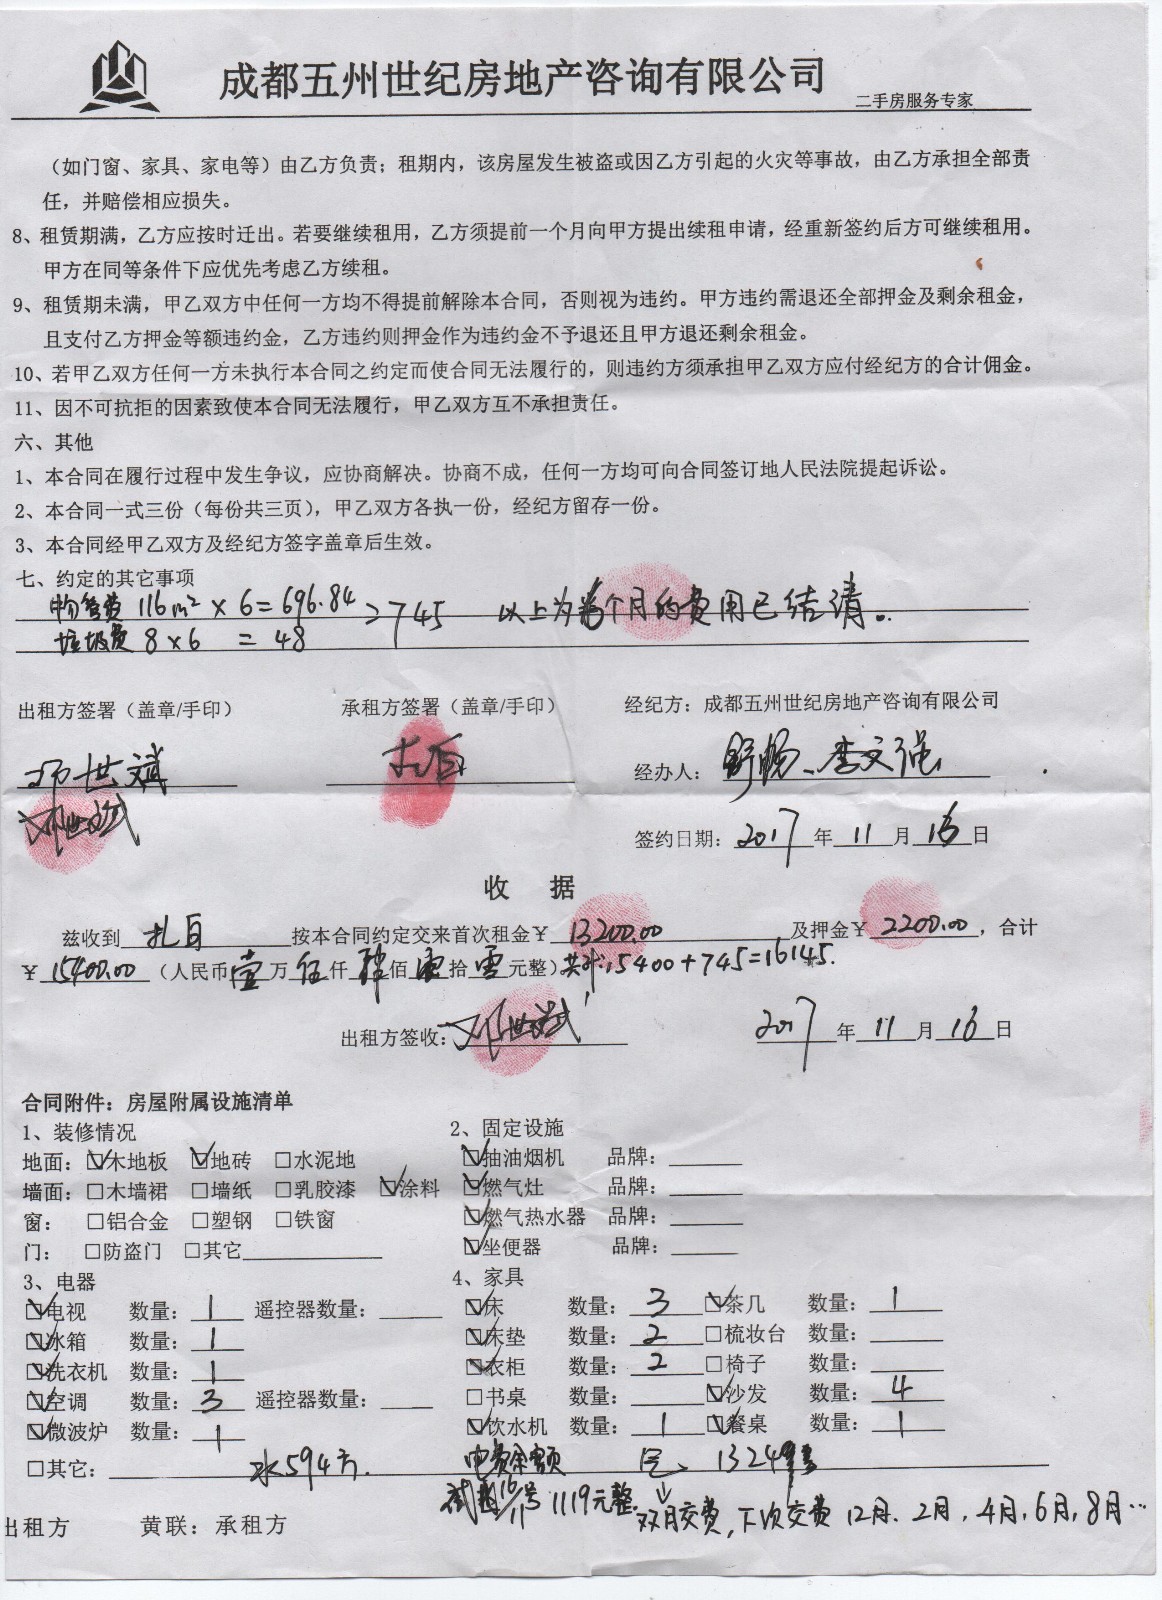 成都五州世纪房地产咨询有限公司 二手房服务专家
（如门窗、家具、家电等）由乙方负责；租期内，该房屋发生被盗或因乙方引起的火灾等事故，由乙方承担全部责
任，并赔偿相应损失。
8、租赁期满，乙方应按时迁出。若要继续租用，乙方须提前一个月向甲方提出续租申请，经重新签约后方可继续租用。
甲方在同等条件下应优先考虑乙方续租。
9、租赁期未满，甲乙双方中任何一方均不得提前解除本合同，否则视为违约。甲方违约需退还全部押金及剩余租金，
且支付乙方押金等额违约金，乙方违约则押金作为违约金不予退还且甲方退还剩余租金。
10、若甲乙双方任何一方未执行本合同之约定而使合同无法履行的，则违约方须承担甲乙双方应付经纪方的合计佣金。
11、因不可抗拒的因素致使本合同无法履行，甲乙双方互不承担责任。
六、其他
1、本合同在履行过程中发生争议，应协商解决。协商不成，任何一方均可向合同签订地人民法院提起诉讼。
2、本合同一式三份（每份共三页），甲乙双方各执一份，经纪方留存一份。
3、本合同经甲乙双方及经纪方签字盖章后生效。
七、约定的其它事项
物管费 116m² × 6 = 696.84 745 以上为6个月的费用已结清。
垃圾费 8×6 = 48
出租方签署（盖章/手印） 承租方签署（盖章/手印） 经纪方：成都五州世纪房地产咨询有限公司
邓世斌 扎西 经办人：舒畅、李文强
邓世斌
签约日期：2017年11月16日
收 据
兹收到 扎西 按本合同约定交来首次租金￥13200.00 及押金￥2200.00，合计
￥15400.00（人民币壹万伍仟肆佰零拾零元整）共计:15400+745=16145.
出租方签收：邓世斌 2017年11月16日
合同附件：房屋附属设施清单
1、装修情况 2、固定设施
地面：☑木地板 ☑地砖 □水泥地 ☑抽油烟机 品牌：
墙面：□木墙裙 □墙纸 □乳胶漆 ☑涂料 ☑燃气灶 品牌：
窗： □铝合金 □塑钢 □铁窗 ☑燃气热水器 品牌：
门： □防盗门 □其它 ☑坐便器 品牌：
3、电器 4、家具
☑电视 数量：1 遥控器数量： ☑床 数量：3 ☑茶几 数量：1
☑冰箱 数量：1 ☑床垫 数量：2 □梳妆台 数量：
☑洗衣机 数量：1 ☑衣柜 数量：2 □椅子 数量：
☑空调 数量：3 遥控器数量： □书桌 数量： ☑沙发 数量：4
☑微波炉 数量：1 ☑饮水机 数量：1 ☑餐桌 数量：1
□其它： 水594方. 电费余额 气 1324
16/11号 1119元整. 双月交费，下次交费 12月、2月，4月，6月，8月…
出租方 黄联：承租方